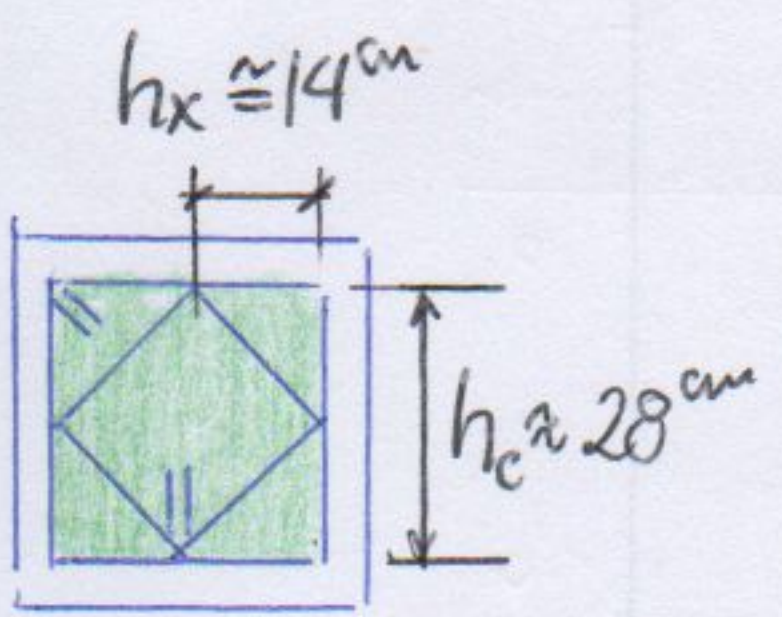 hx ≅ 14 cm
hc ≈ 28 cm